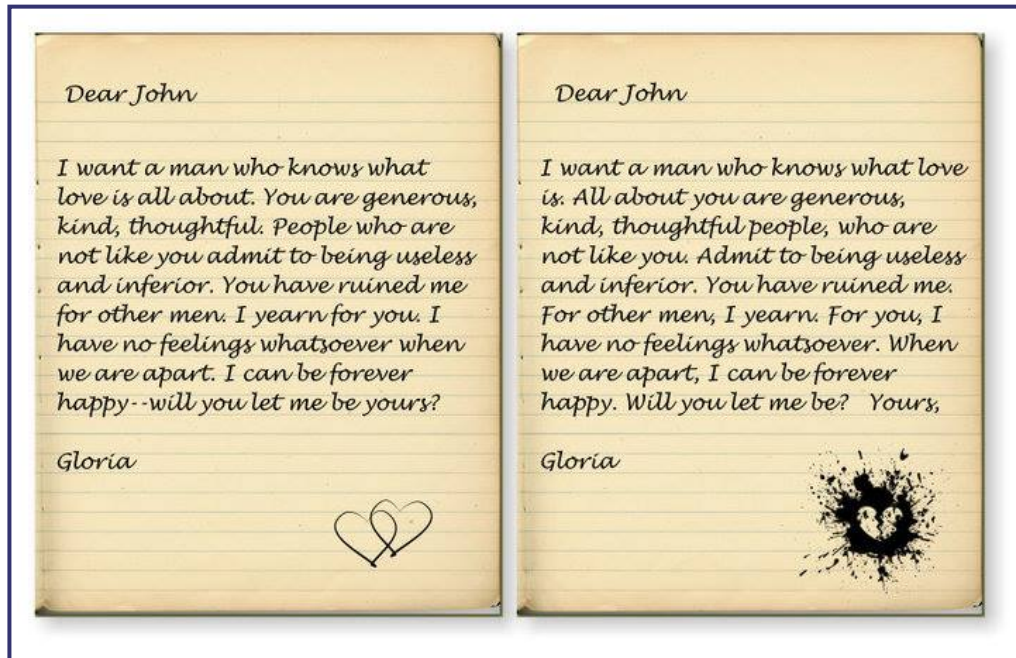 Dear John
I want a man who knows what
love is all about. You are generous,
kind, thoughtful. People who are
not like you admit to being useless
and inferior. You have ruined me
for other men. I yearn for you. I
have no feelings whatsoever when
we are apart. I can be forever
happy--will you let me be yours?
Gloria
Dear John
I want a man who knows what love
is. All about you are generous,
kind, thoughtful people, who are
not like you. Admit to being useless
and inferior. You have ruined me.
For other men, I yearn. For you, I
have no feelings whatsoever. When
we are apart, I can be forever
happy. Will you let me be? Yours,
Gloria